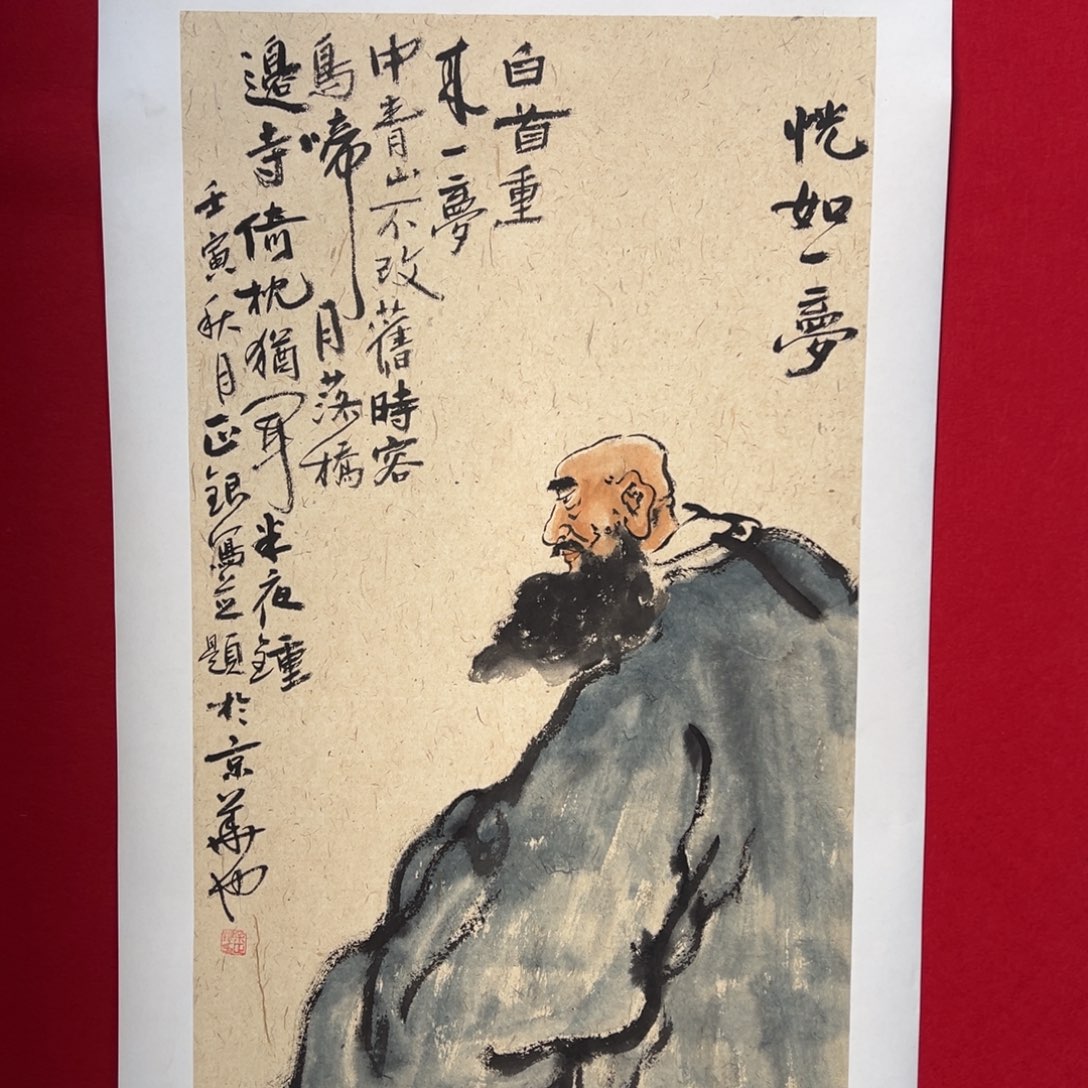 恍如一夢
白首重
來一夢
中青山不改舊時容
烏啼月落橋
邊寺倚枕猶聞半夜鍾
壬寅秋月正銀寫並題於京華也